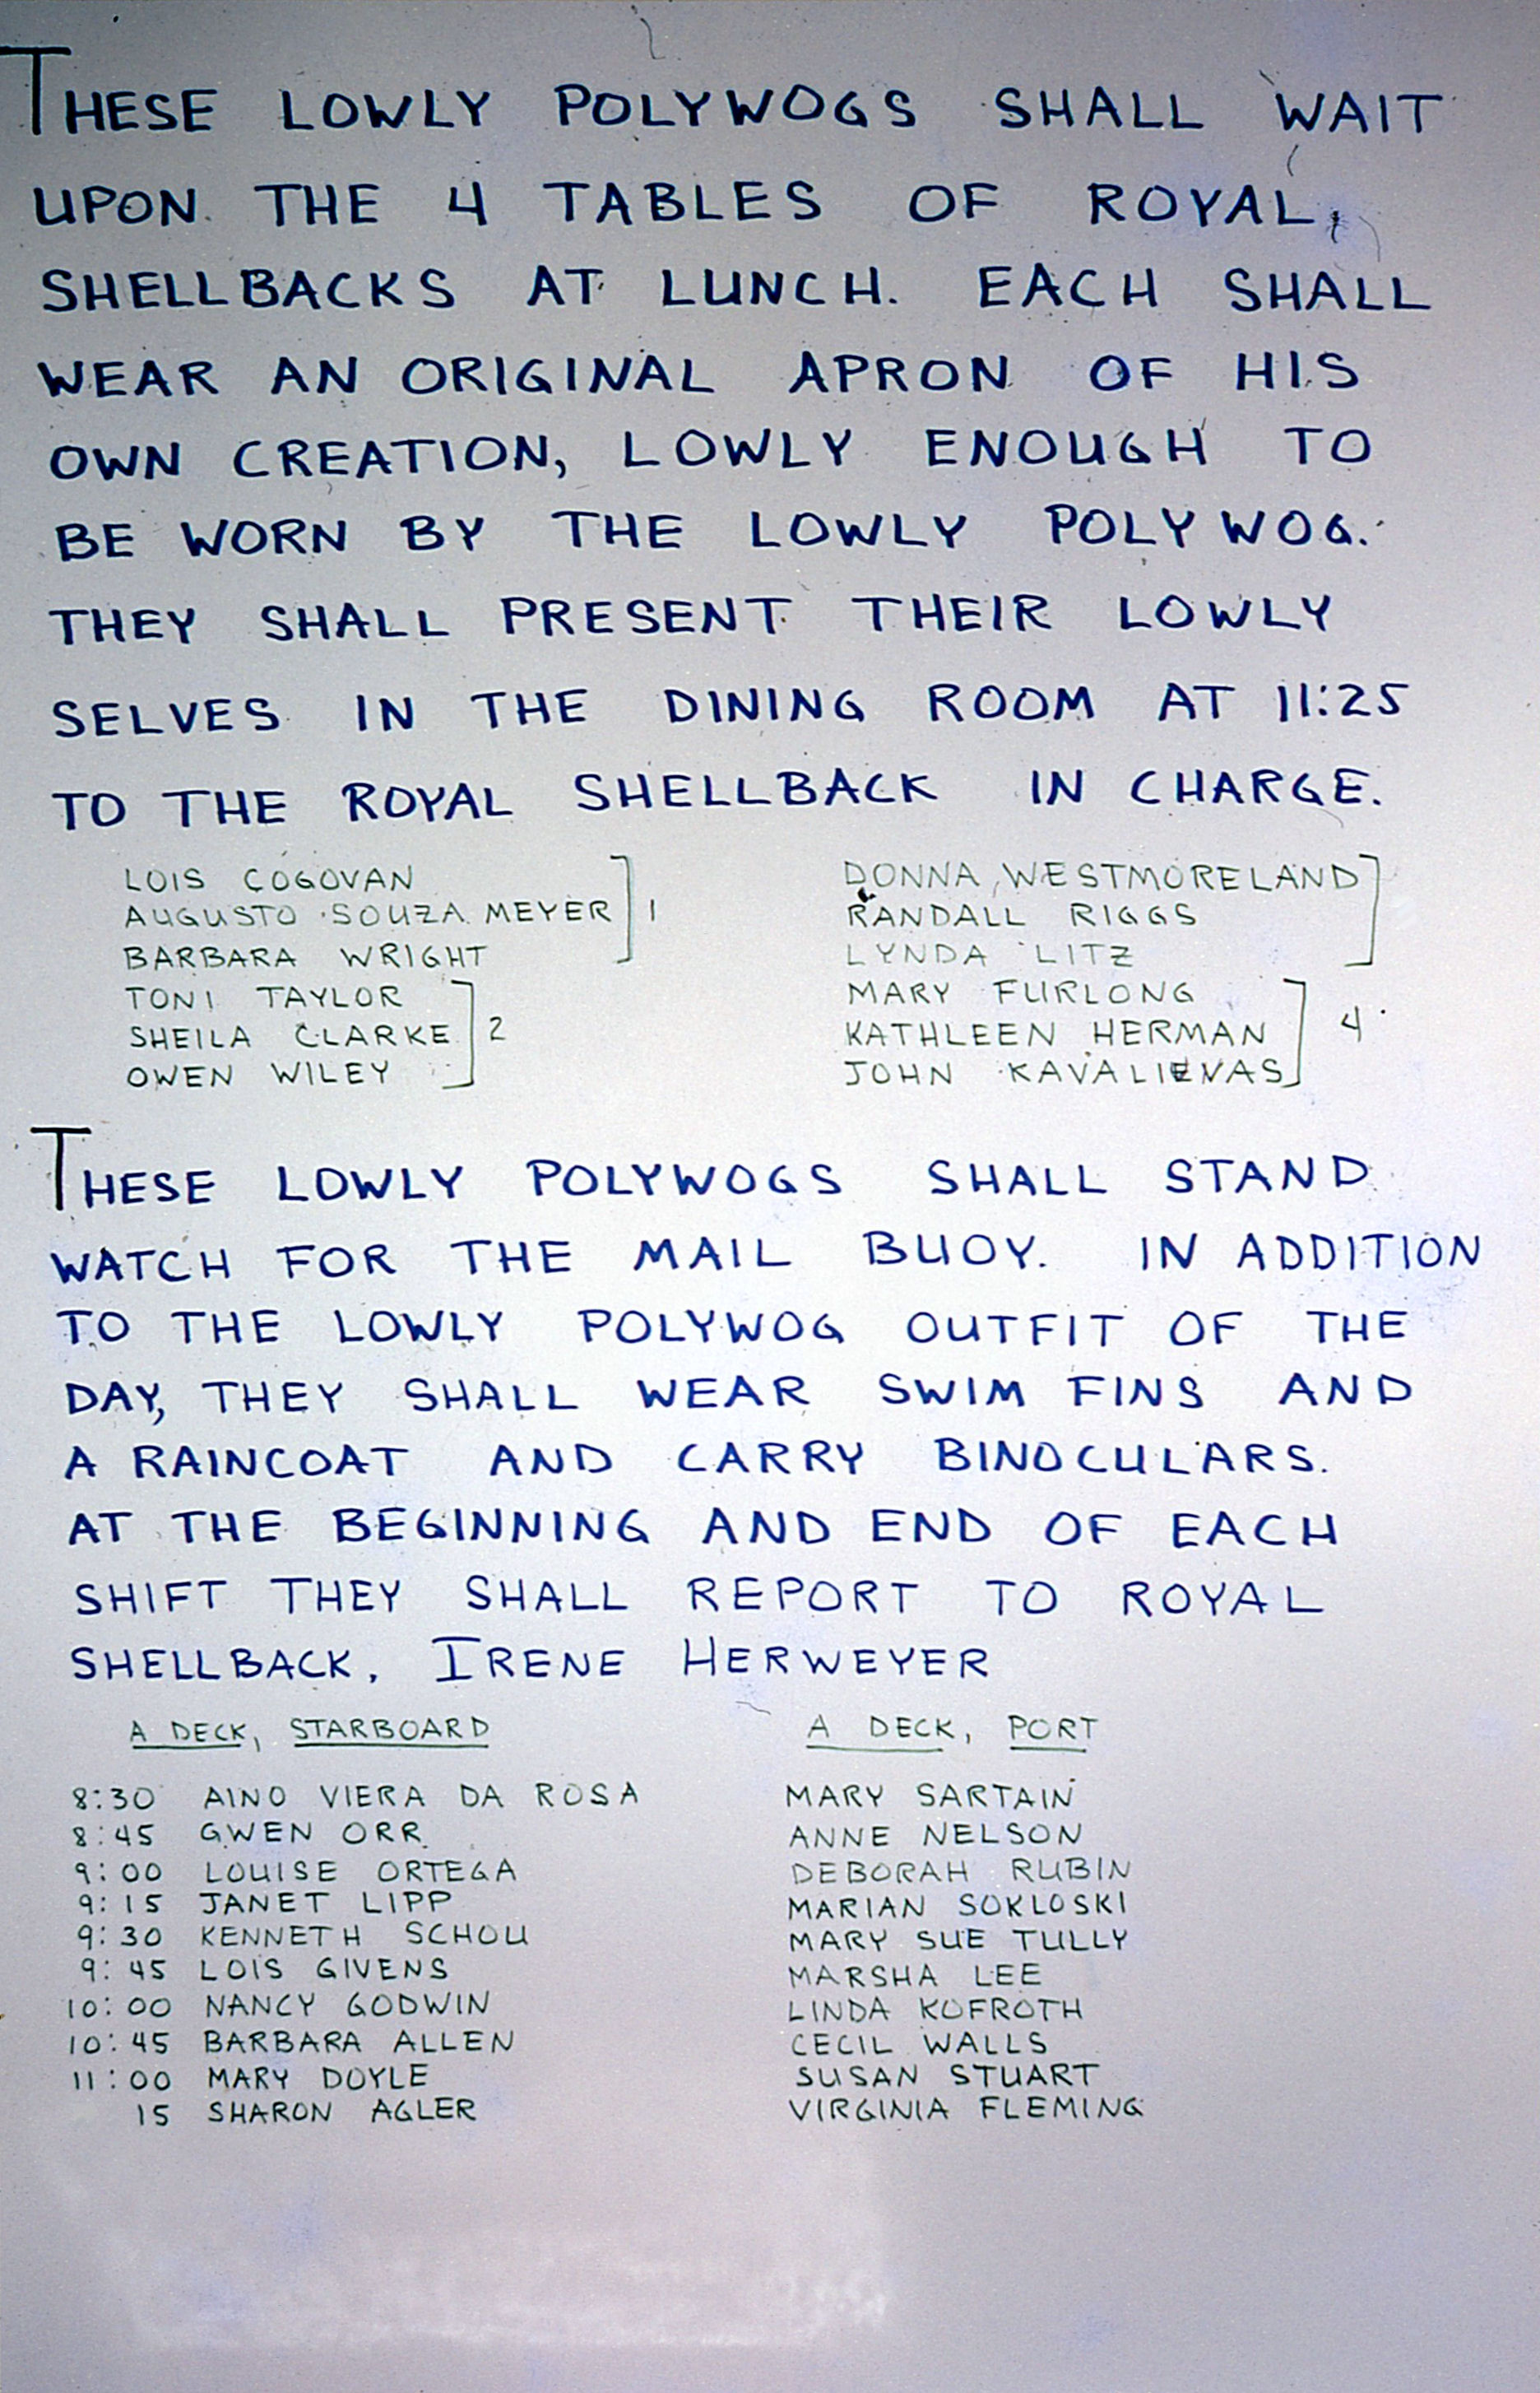 THESE LOWLY POLYWOGS SHALL WAIT
UPON THE 4 TABLES OF ROYAL
SHELLBACKS AT LUNCH. EACH SHALL
WEAR AN ORIGINAL APRON OF HIS
OWN CREATION, LOWLY ENOUGH TO
BE WORN BY THE LOWLY POLYWOG.
THEY SHALL PRESENT THEIR LOWLY
SELVES IN THE DINING ROOM AT 11:25
TO THE ROYAL SHELLBACK IN CHARGE.
LOIS COGOVAN
AUGUSTO SOUZA MEYER ] 1
BARBARA WRIGHT
TONI TAYLOR
SHEILA CLARKE ] 2
OWEN WILEY
DONNA WESTMORELAND
RANDALL RIGGS ]
LYNDA LITZ
MARY FURLONG
KATHLEEN HERMAN ] 4
JOHN KAVALIENAS
THESE LOWLY POLYWOGS SHALL STAND
WATCH FOR THE MAIL BUOY. IN ADDITION
TO THE LOWLY POLYWOG OUTFIT OF THE
DAY, THEY SHALL WEAR SWIM FINS AND
A RAINCOAT AND CARRY BINOCULARS.
AT THE BEGINNING AND END OF EACH
SHIFT THEY SHALL REPORT TO ROYAL
SHELLBACK, IRENE HERWEYER
A DECK, STARBOARD
8:30 AINO VIERA DA ROSA
8:45 GWEN ORR
9:00 LOUISE ORTEGA
9:15 JANET LIPP
9:30 KENNETH SCHOU
9:45 LOIS GIVENS
10:00 NANCY GODWIN
10:45 BARBARA ALLEN
11:00 MARY DOYLE
15 SHARON AGLER
A DECK, PORT
MARY SARTAIN
ANNE NELSON
DEBORAH RUBIN
MARIAN SOKLOSKI
MARY SUE TULLY
MARSHA LEE
LINDA KOFROTH
CECIL WALLS
SUSAN STUART
VIRGINIA FLEMING